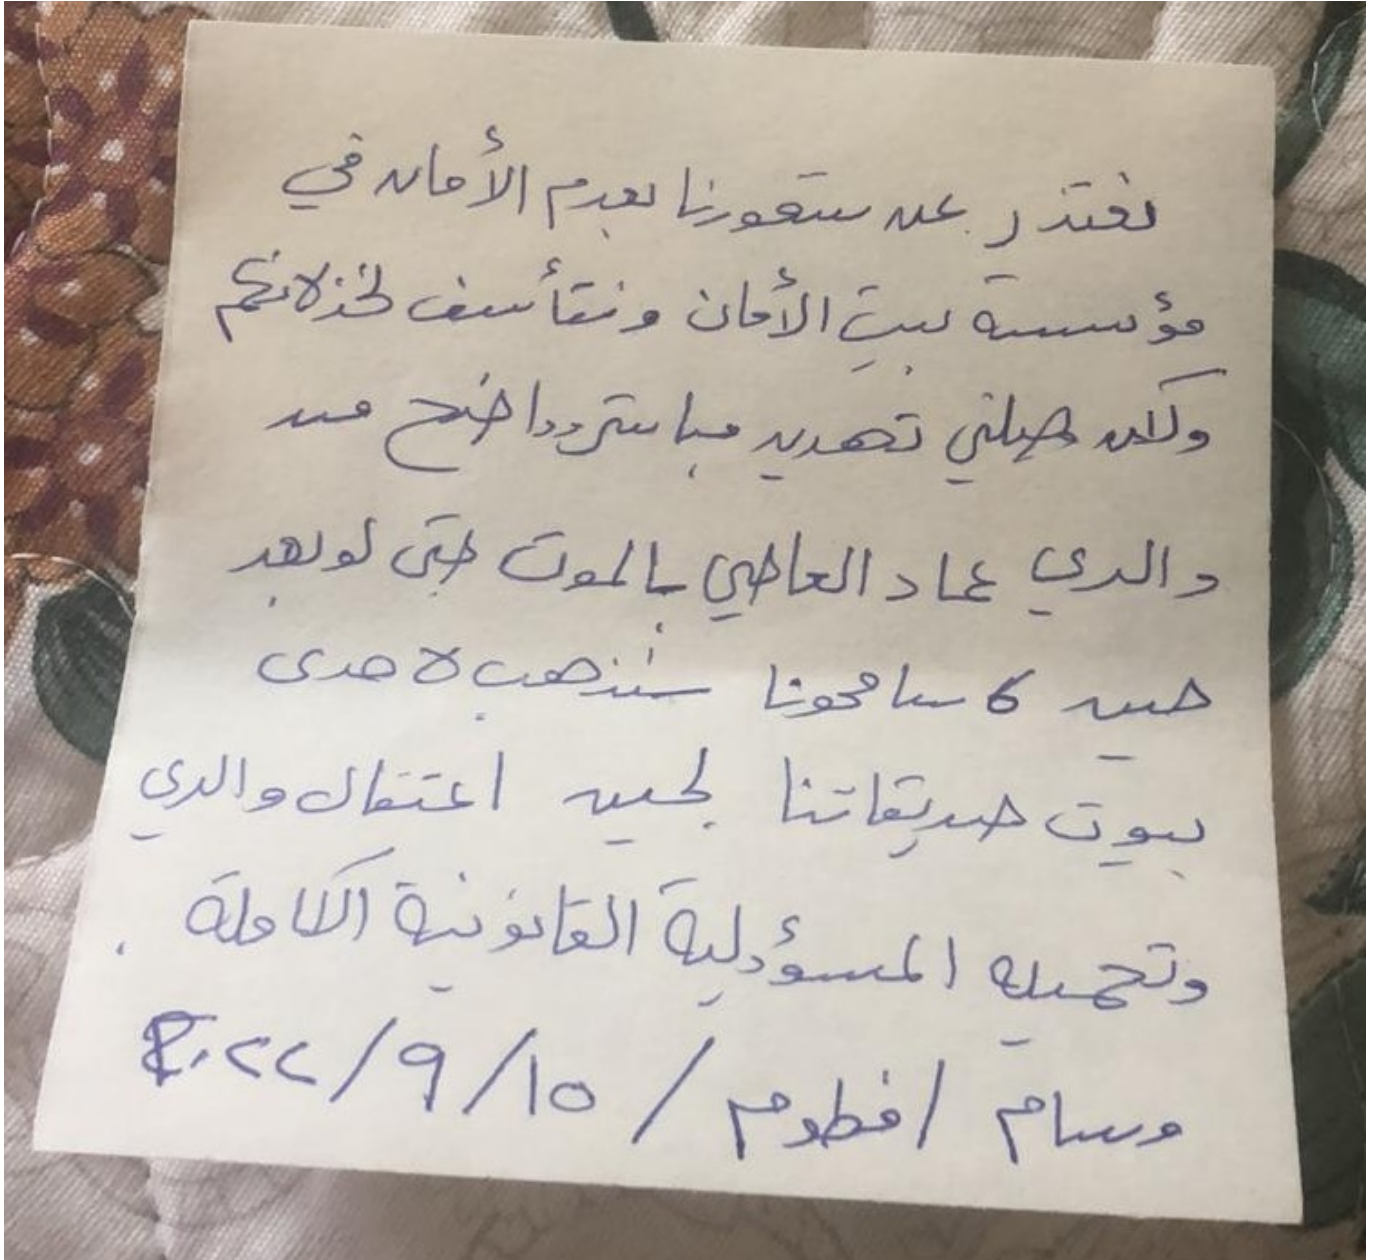 نعتذر عن شعورنا بعدم الأمان في
مؤسسة بيت الأمان ونتأسف لخذلانكم
ولكن وصلني تهديد مباشر وواضح من
والدي عماد العاصي بالموت حتى لو بعد
حين، سامحونا سنذهب لاحدى
بيوت صديقاتنا لحين اعتقال والدي
وتحميله المسؤولية القانونية الكاملة.
وسام / فطوم / ١٥/٩/٢٠٢٢